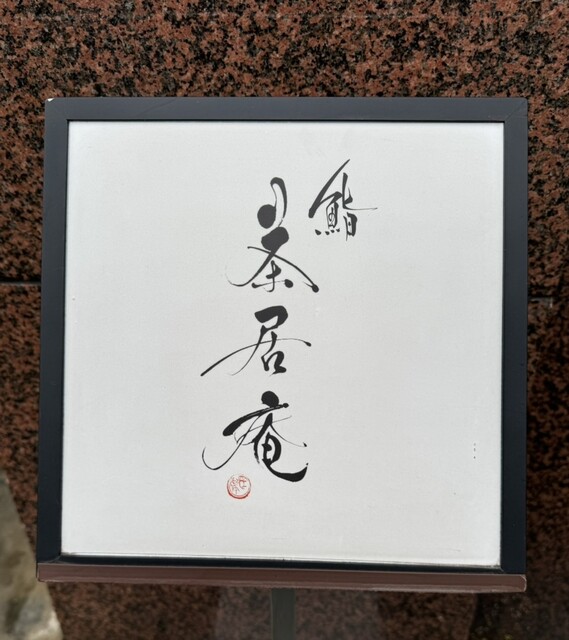 鮨
茶居庵